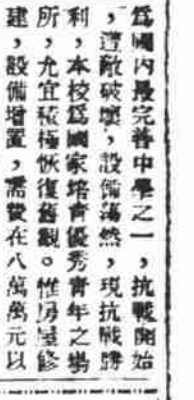 為國內最完善中學之一，抗戰開始
，遭敵破壞，設備蕩然，現抗戰勝
利，本校為國家培育優秀青年之場
所，允宜積極恢復舊觀。惟房屋修
建，設備增置，需費在八萬萬元以